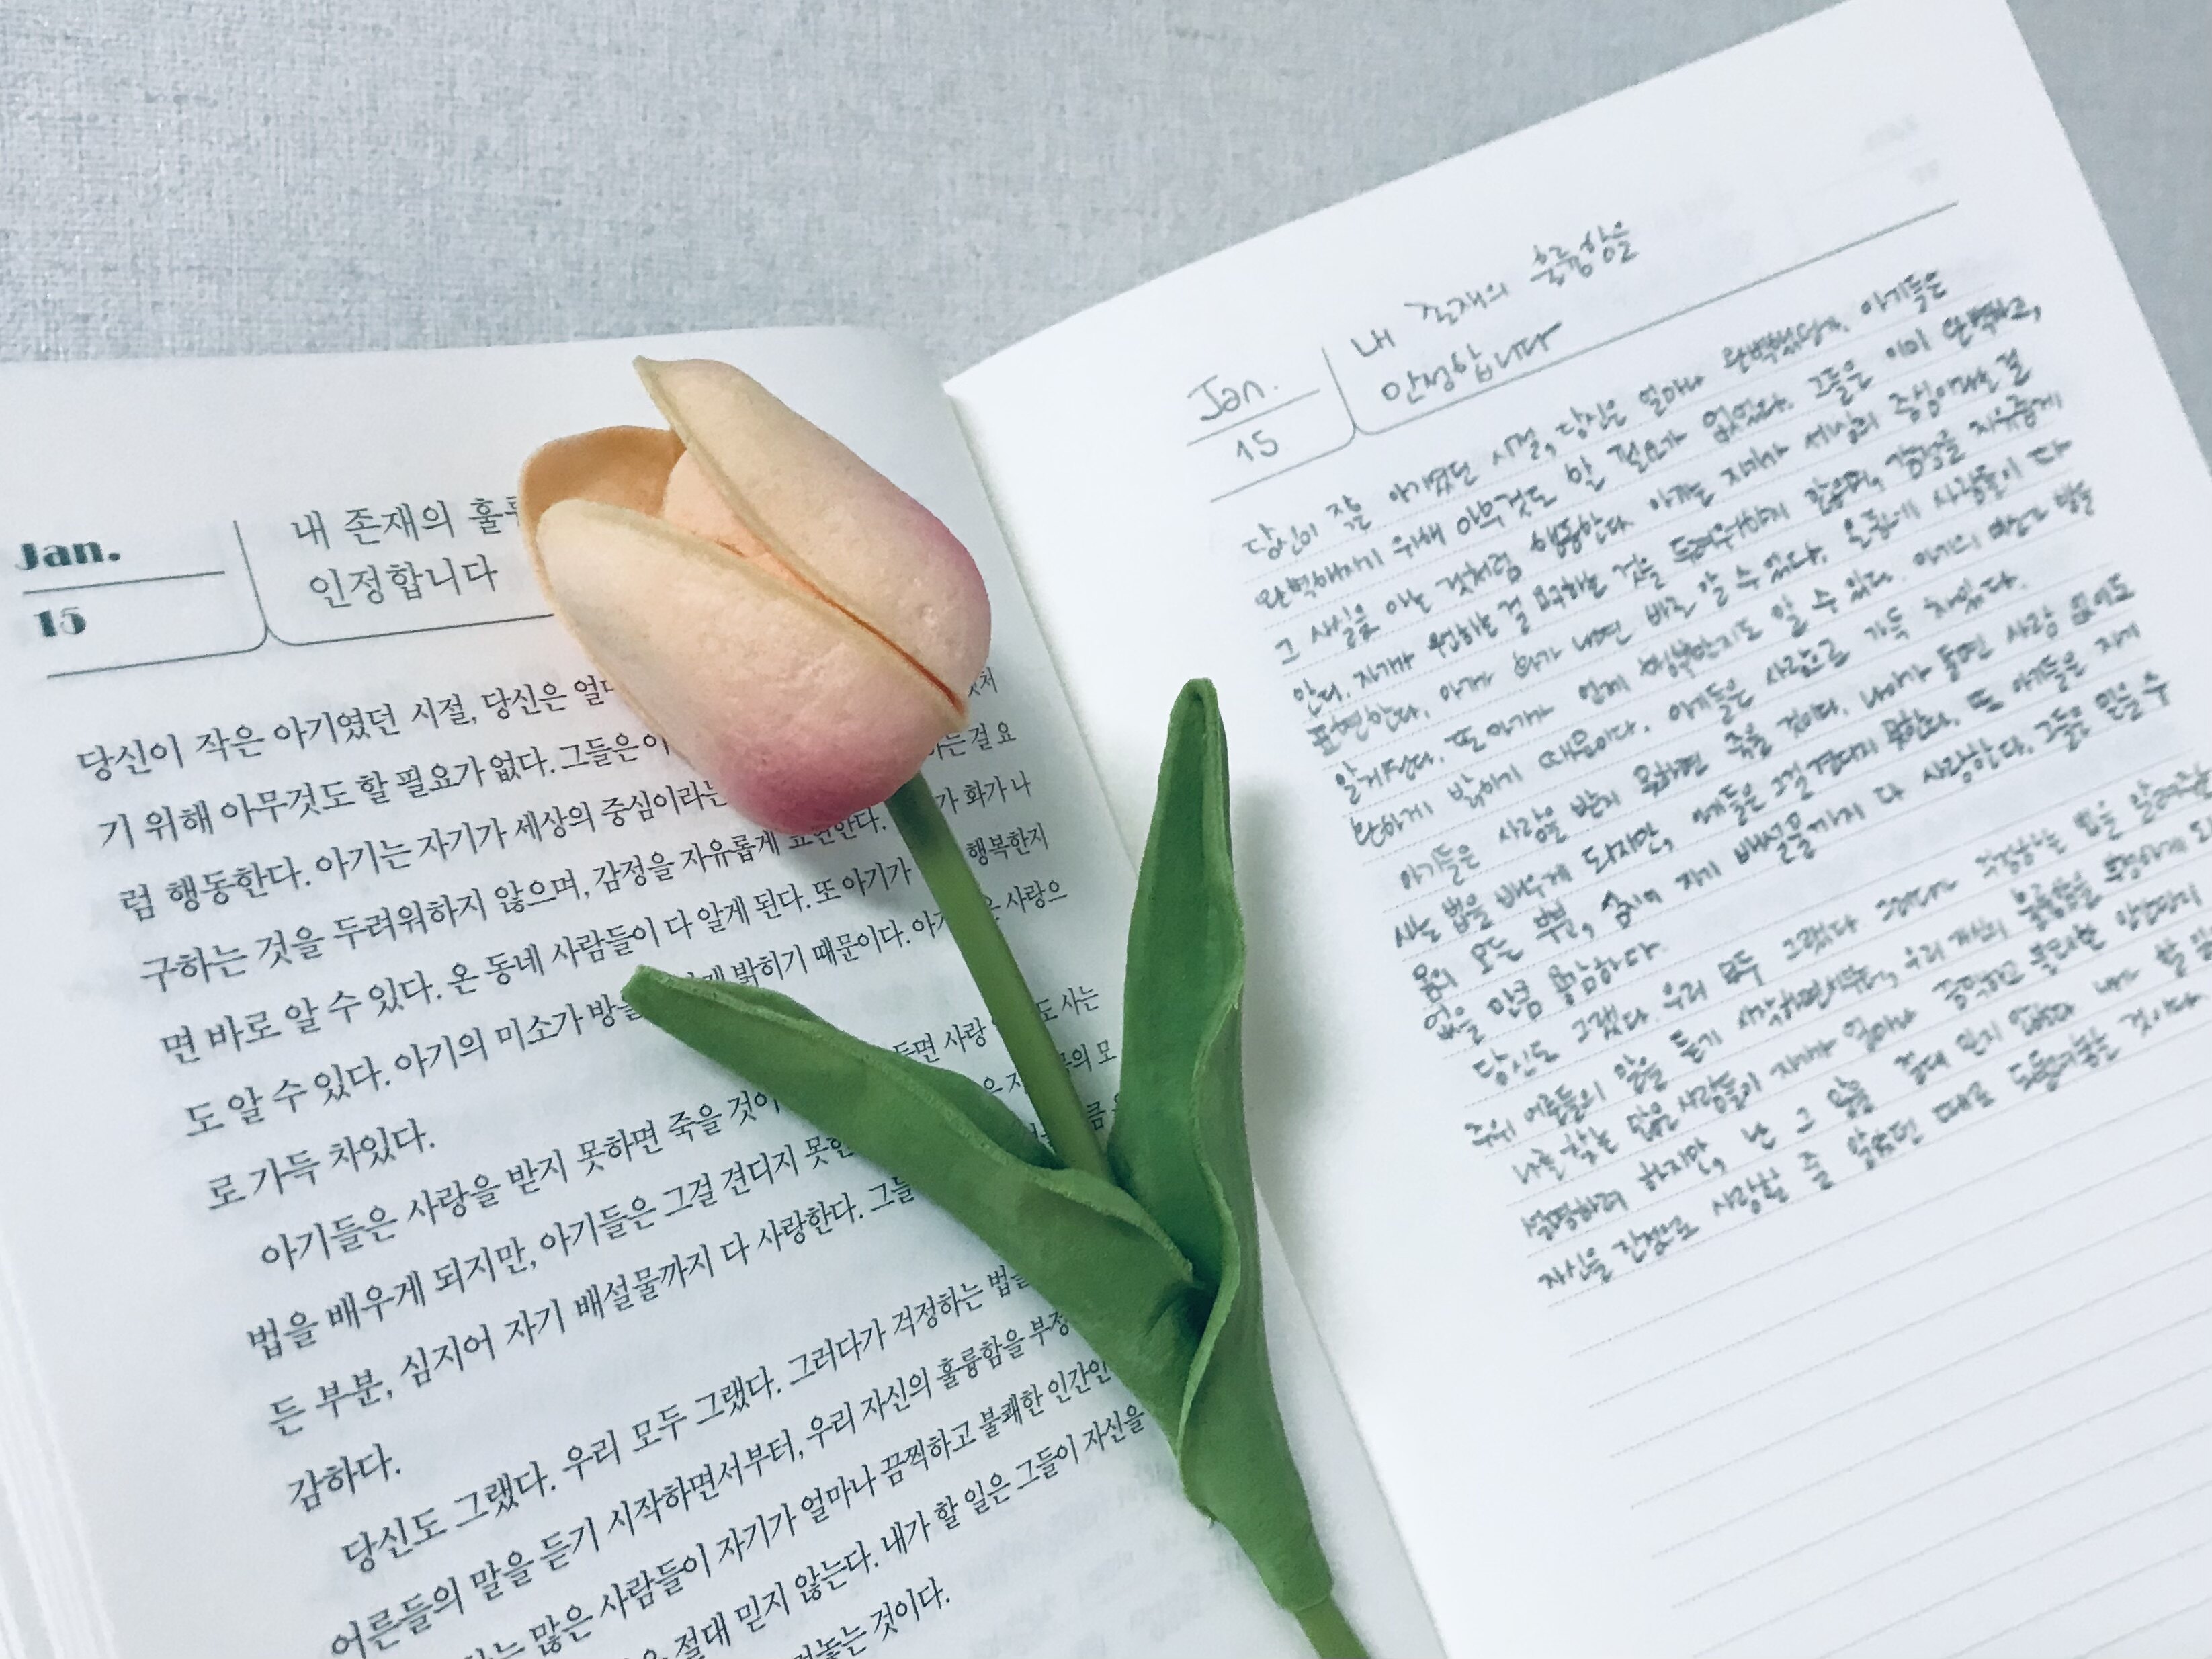 Jan.
15
내 존재의
인정합니다
당신이 작은 아기였던 시절, 당신은
기 위해 아무것도 할 필요가 없다. 그들은
럼 행동한다. 아기는 자기가 세상의 중심이라는 하는 걸 요
구하는 것을 두려워하지 않으며, 감정을 자유롭게 표현한다. 가 화가 나
면 바로 알 수 있다. 온 동네 사람들이 다 알게 된다. 또 아기가 행복한지
도 알 수 있다. 아기의 미소가 밝히기 때문이다. 사랑으
로 가득 차있다.
아기들은 사랑을 받지 못하면 죽을 사랑 사는
법을 배우게 되지만, 아기들은 그걸 견디지 모
든 부분, 심지어 자기 배설물까지 다 사랑한다.
감하다.
당신도 그랬다. 우리 모두 그랬다. 그러다가 걱정하는
어른들의 말을 듣기 시작하면서부터, 우리 자신의 훌륭함을
많은 사람들이 자기가 얼마나 끔찍하고 불쾌한
절대 믿지 않는다. 내가 할 일은 그들이 자신을
것이다.
Jan.
15
내 존재의 훌륭함을
인정합니다
당신이 작은 아기였던 시절, 당신은 얼마나 완벽했던가. 아기들은
완벽해지기 위해 아무것도 할 필요가 없었다. 그들은 이미 완벽하고,
그 사실을 아는 것처럼 행동한다. 아기는 자기가 세상의 중심이라는 걸
안다. 자기가 원하는 걸 요구하는 것을 두려워하지 않으며, 감정을 자유롭게
표현한다. 아기가 화가 나면 바로 알 수 있다. 온 동네 사람들이 다
알게 된다. 또 아기가 언제 행복한지도 알 수 있다. 아기의 미소가 방을
환하게 밝히기 때문이다. 아기들은 사랑으로 가득 차있다.
아기들은 사랑을 받지 못하면 죽을 것이다. 나이가 들면 사랑 없이도
사는 법을 배우게 되지만, 아기들은 그걸 견디지 못한다. 또 아기들은 자기
몸의 모든 부분, 심지어 자기 배설물까지 다 사랑한다. 그들은 믿을 수
없을 만큼 용감하다.
당신도 그랬다. 우리 모두 그랬다. 그러다가 걱정하는 법을
주위 어른들의 말을 듣기 시작하면서부터, 우리 자신의 훌륭함을 부정하게
나를 찾는 많은 사람들이 자기가 얼마나 끔찍하고 불쾌한 인간인지
설명하려 하지만, 난 그 말을 절대 믿지 않는다. 내가 할
자신을 진정으로 사랑할 줄 알았던 때로 되돌려놓는 것이다.